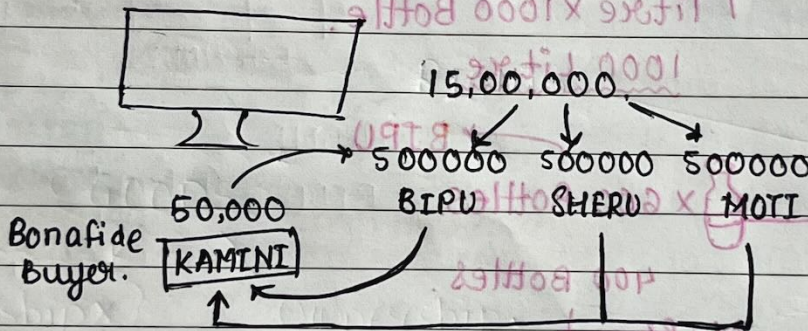 15,00,000.
500000 500000 500000
BIPU SHERU MOTI
50,000
Bonafide
Buyer.
KAMINI